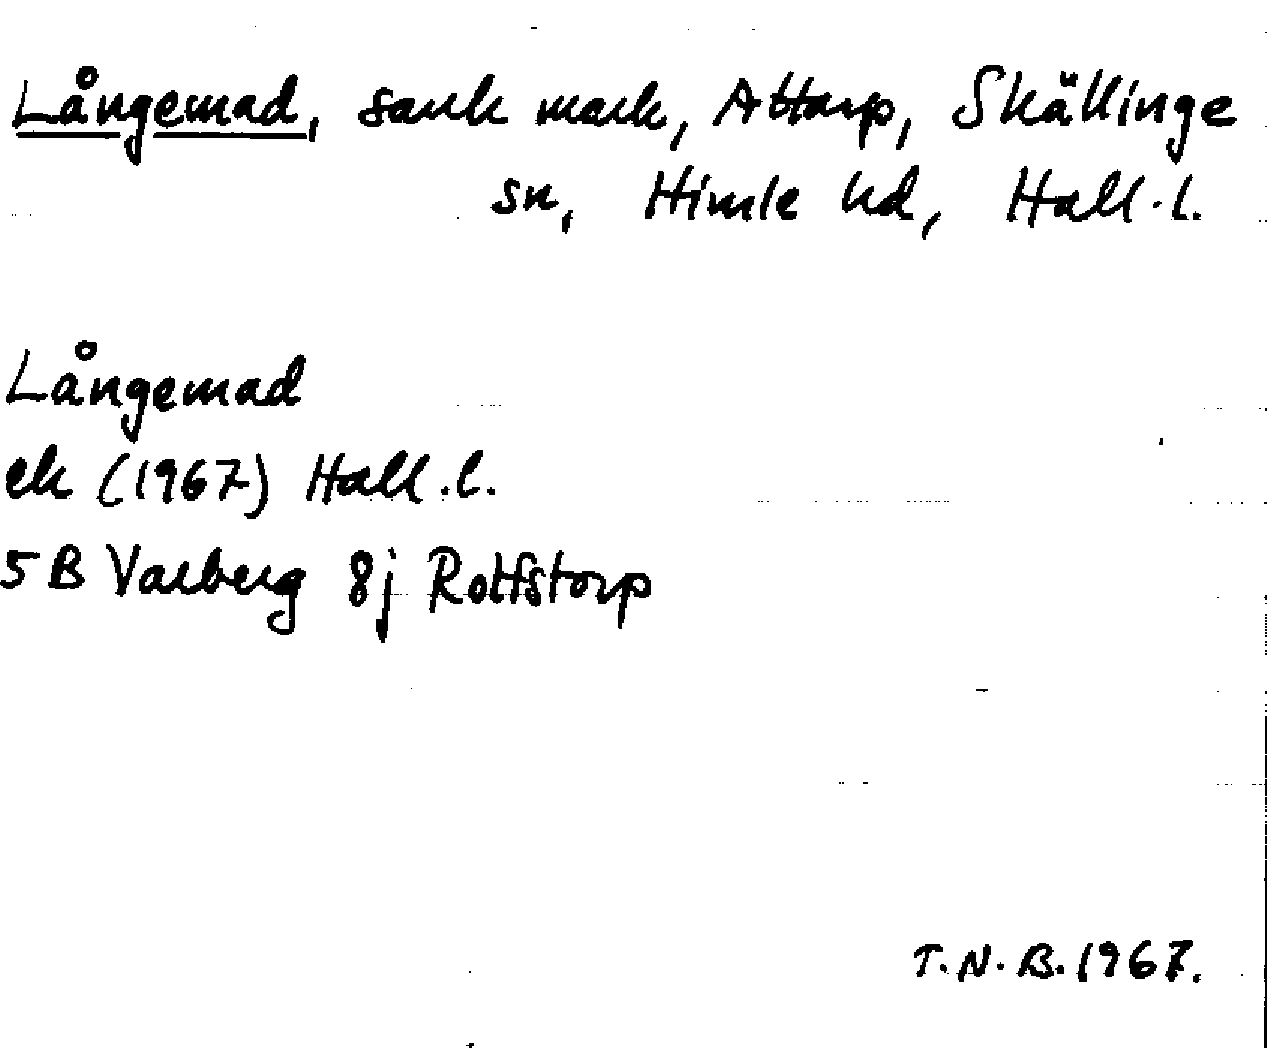 Långemad, sank mark, Attarp, Skällinge
sn, Himle hd, Hall.l.
Långemad
ek (1967) Hall.l.
5B Varberg 8j Rolfstorp
T.N.B.1967.